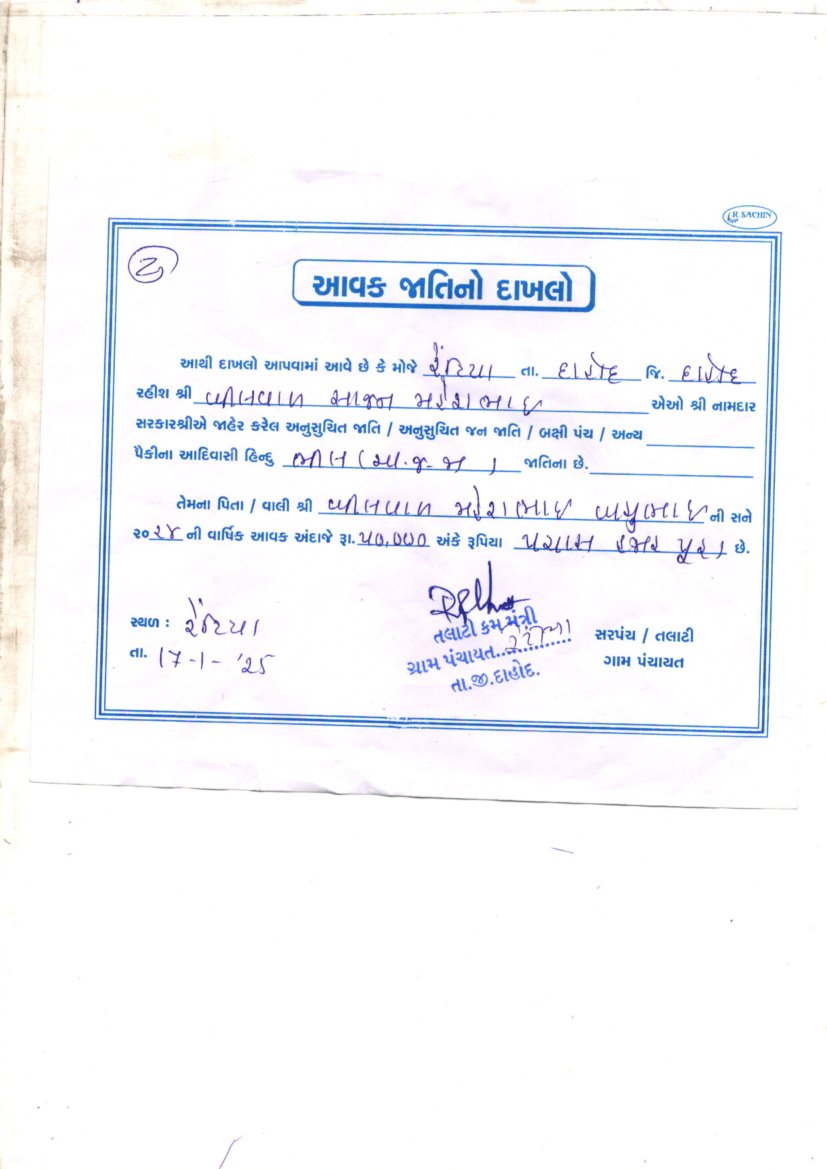 R. SACHIN
2
આવક જાતિનો દાખલો
આથી દાખલો આપવામાં આવે છે કે મોજે રેંટિયા તા. દાહોદ જિ. દાહોદ
રહીશ શ્રી મહેશભાઇ એઓ શ્રી નામદાર
સરકારશ્રીએ જાહેર કરેલ અનુસુચિત જાતિ / અનુસુચિત જન જાતિ / બક્ષી પંચ / અન્ય
પૈકીના આદિવાસી હિન્દુ ભીલ (અ.જ.જ) જાતિના છે.
તેમના પિતા / વાલી શ્રી મહેશભાઇ ની સને
૨૦૨૪ ની વાર્ષિક આવક અંદાજે રૂા. ૫૦,૦૦૦ અંકે રૂપિયા પચાસ હજાર પૂરા છે.
સ્થળ : રેંટિયા
તા. 17-1-'25
તલાટી કમ મંત્રી
ગ્રામ પંચાયત..રેંટિયા
તા.જી.દાહોદ.
સરપંચ / તલાટી
ગામ પંચાયત